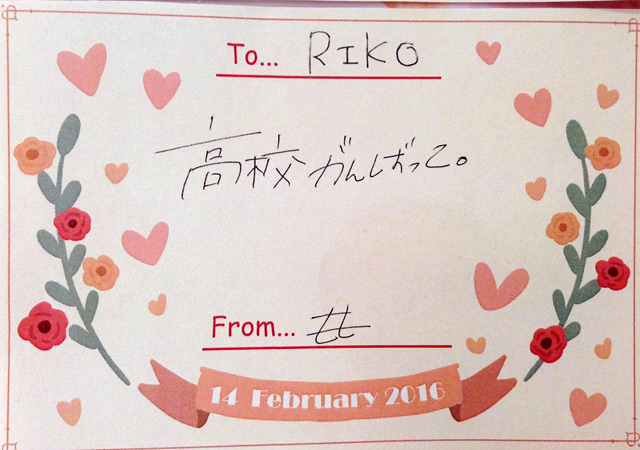 To... RIKO
高校がんばって。
From...
14 February 2016